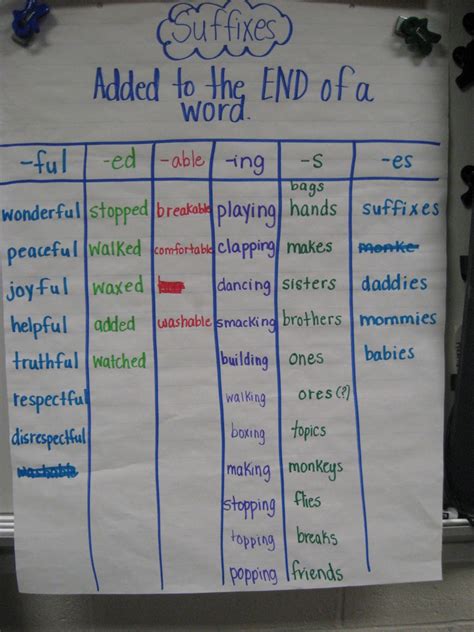 Suffixes
Added to the END of a
word.
-ful -ed -able -ing -s -es
bags
wonderful stopped breakable playing hands suffixes
peaceful walked comfortable clapping makes monke
joyful waxed dancing sisters daddies
helpful added washable smacking brothers mommies
truthful watched building ones babies
respectful walking ores(?)
disrespectful boxing topics
washable making monkeys
stopping flies
topping breaks
popping friends